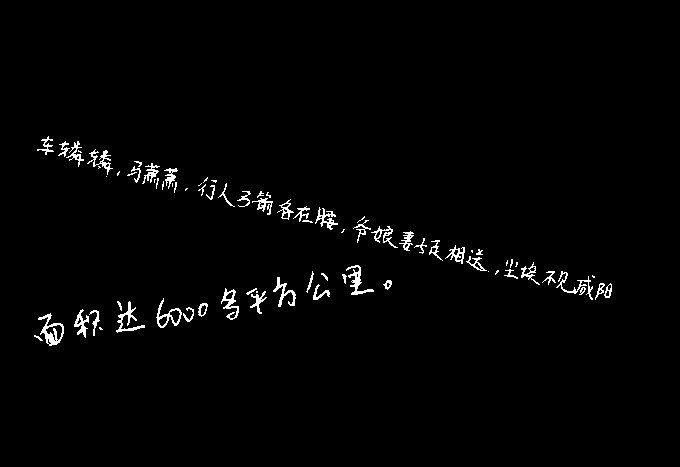 车辚辚,马萧萧,行人弓箭各在腰,爷娘妻子走相送,尘埃不见咸阳
面积达6000多平方公里。